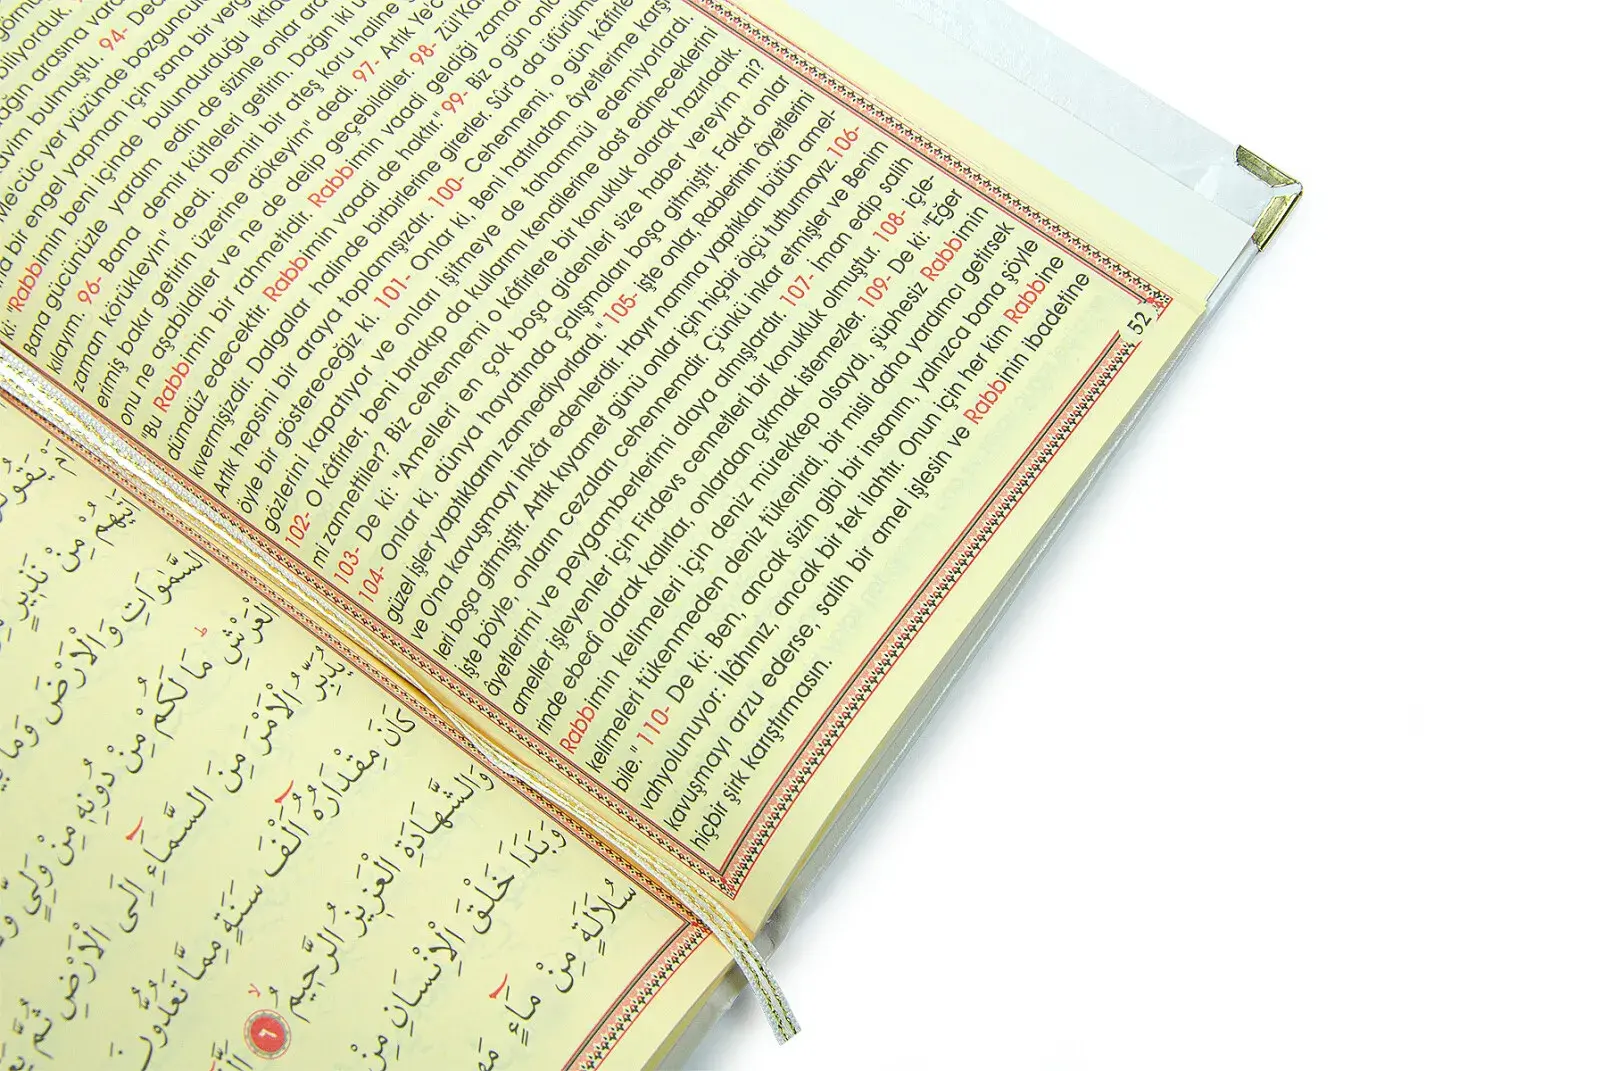 biliyorduk.
dağın arasına
94-
yer yüzünde bozguncul
bir engel yapman için sana bir verg
ki "Rabbimin beni içinde bulundurduğu iktid
Bana gücünüzle yardım edin de sizinle onlar ara
kılayım. 96- Bana demir kütleleri getirin. Dağın iki u
zaman körükleyin" dedi. Demiri bir ateş koru haline g
erimiş bakır getirin üzerine dökeyim" dedi. 97- Artık Ye'c
onu ne aşabildiler ve ne de delip geçebildiler. 98- Zül'Ka
"Bu Rabbimin bir rahmetidir. Rabbimin vaadi geldiği zama
dümdüz edecektir. Rabbimin vaadi de haktır." 99- Biz o gün onla
kıvermişizdir. Dalgalar halinde birbirlerine girerler. Sûra da üfürülm
Artık hepsini bir araya toplamışızdır. 100- Cehennemi, o gün kâfirle
öyle bir göstereceğiz ki. 101- Onlar ki, Beni hatırlatan âyetlerime karşı
gözlerini kapatıyor ve onları işitmeye de tahammül edemiyorlardı.
102- O kâfirler, beni bırakıp da kullarımı kendilerine dost edineceklerini
mi zannettiler? Biz cehennemi o kâfirlere bir konukluk olarak hazırladık.
103- De ki: "Amelleri en çok boşa gidenleri size haber vereyim mi?
104- Onlar ki, dünya hayatında çalışmaları boşa gitmiştir. Fakat onlar
güzel işler yaptıklarını zannediyorlardı." 105- işte onlar, Rablerinin âyetlerini
ve O'na kavuşmayı inkâr edenlerdir. Hayır namına yaptıkları bütün amel-
leri boşa gitmiştir. Artık kıyamet günü onlar için hiçbir ölçü tutturmayız.106-
İşte böyle, onların cezaları cehennemdir. Çünkü inkar etmişler ve Benim
âyetlerimi ve peygamberlerimi alaya almışlardır. 107- İman edip salih
ameller işleyenler için Firdevs cennetleri bir konukluk olmuştur. 108- içle-
rinde ebedî olarak kalırlar, onlardan çıkmak istemezler. 109- De ki: "Eğer
Rabbimin kelimeleri için deniz mürekkep olsaydı, şüphesiz Rabbimin
kelimeleri tükenmeden deniz tükenirdi, bir misli daha yardımcı getirsek
bile." 110- De ki: Ben, ancak sizin gibi bir insanım, yalnızca bana şöyle
vahyolunuyor: İlâhınız, ancak bir tek ilahtır. Onun için her kim Rabbine
kavuşmayı arzu ederse, salih bir amel işlesin ve Rabbinin ibadetine
hiçbir şirk karıştırmasın.
52
يَقُولُونَ
مِنْ نَذِيرٍ
السَّمٰوَاتِ وَالْاَرْضَ وَمَا
الْعَرْشِ مَا لَكُمْ مِنْ دُونِهِ مِنْ وَلِيٍّ
يُدَبِّرُ الْاَمْرَ مِنَ السَّمَاءِ اِلَى الْاَرْضِ ثُمَّ
كَانَ مِقْدَارُهُ اَلْفَ سَنَةٍ مِمَّا تَعُدُّونَ
وَالشَّهَادَةِ الْعَزِيزُ الرَّحِيمُ ٦
وَبَدَاَ خَلْقَ الْاِنْسَانِ مِنْ
سُلَالَةٍ مِنْ مَاءٍ